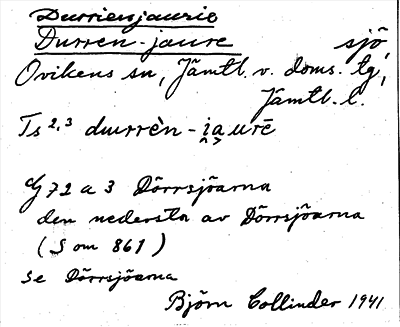 Durrienjaurie
Durren-jaure sjö,
Ovikens sn, Jämtl. v. doms. tg,
Jämtl. l.
Ts 2,3 duurrèn-i̯a̯urē
G 72 a 3 Dörrsjöarna
den nedersta av Dörrsjöarna
(S om 861)
se Dörrsjöarna
Björn Collinder 1941